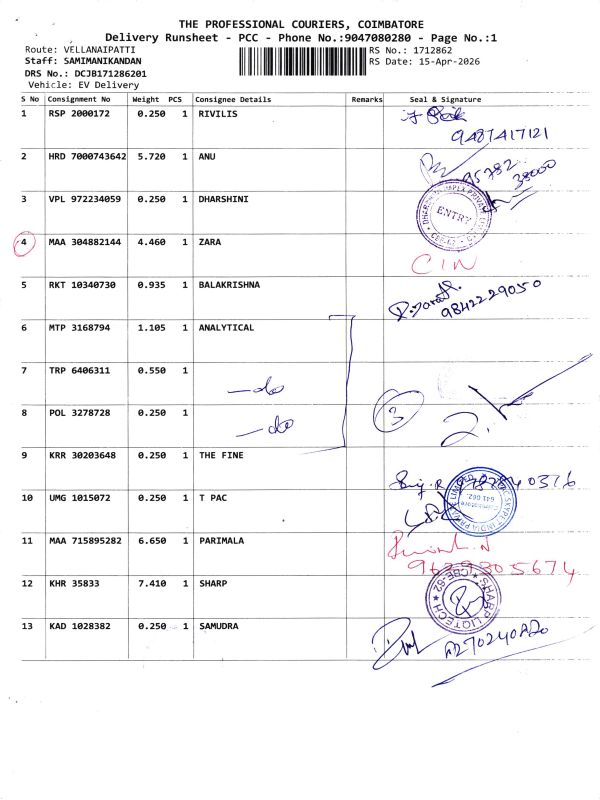 THE PROFESSIONAL COURIERS, COIMBATORE
Delivery Runsheet - PCC - Phone No.:9047080280 - Page No.:1
Route: VELLANAIPATTI
Staff: SAMIMANIKANDAN
DRS No.: DCJB171286201
Vehicle: EV Delivery
RS No.: 1712862
RS Date: 15-Apr-2026
S No Consignment No Weight PCS Consignee Details Remarks Seal & Signature
1 RSP 2000172 0.250 1 RIVILIS
9487417121
2 HRD 7000743642 5.720 1 ANU
95782 38000
3 VPL 972234059 0.250 1 DHARSHINI
ENTRY
4 MAA 304882144 4.460 1 ZARA
CIN
5 RKT 10340730 0.935 1 BALAKRISHNA
9842229050
6 MTP 3168794 1.105 1 ANALYTICAL
7 TRP 6406311 0.550 1
-do
8 POL 3278728 0.250 1
-do
3
9 KRR 30203648 0.250 1 THE FINE
10 UMG 1015072 0.250 1 T PAC
11 MAA 715895282 6.650 1 PARIMALA
9629805674
12 KHR 35833 7.410 1 SHARP
SHARP LIQTECH * CBE-62 *
13 KAD 1028382 0.250 1 SAMUDRA